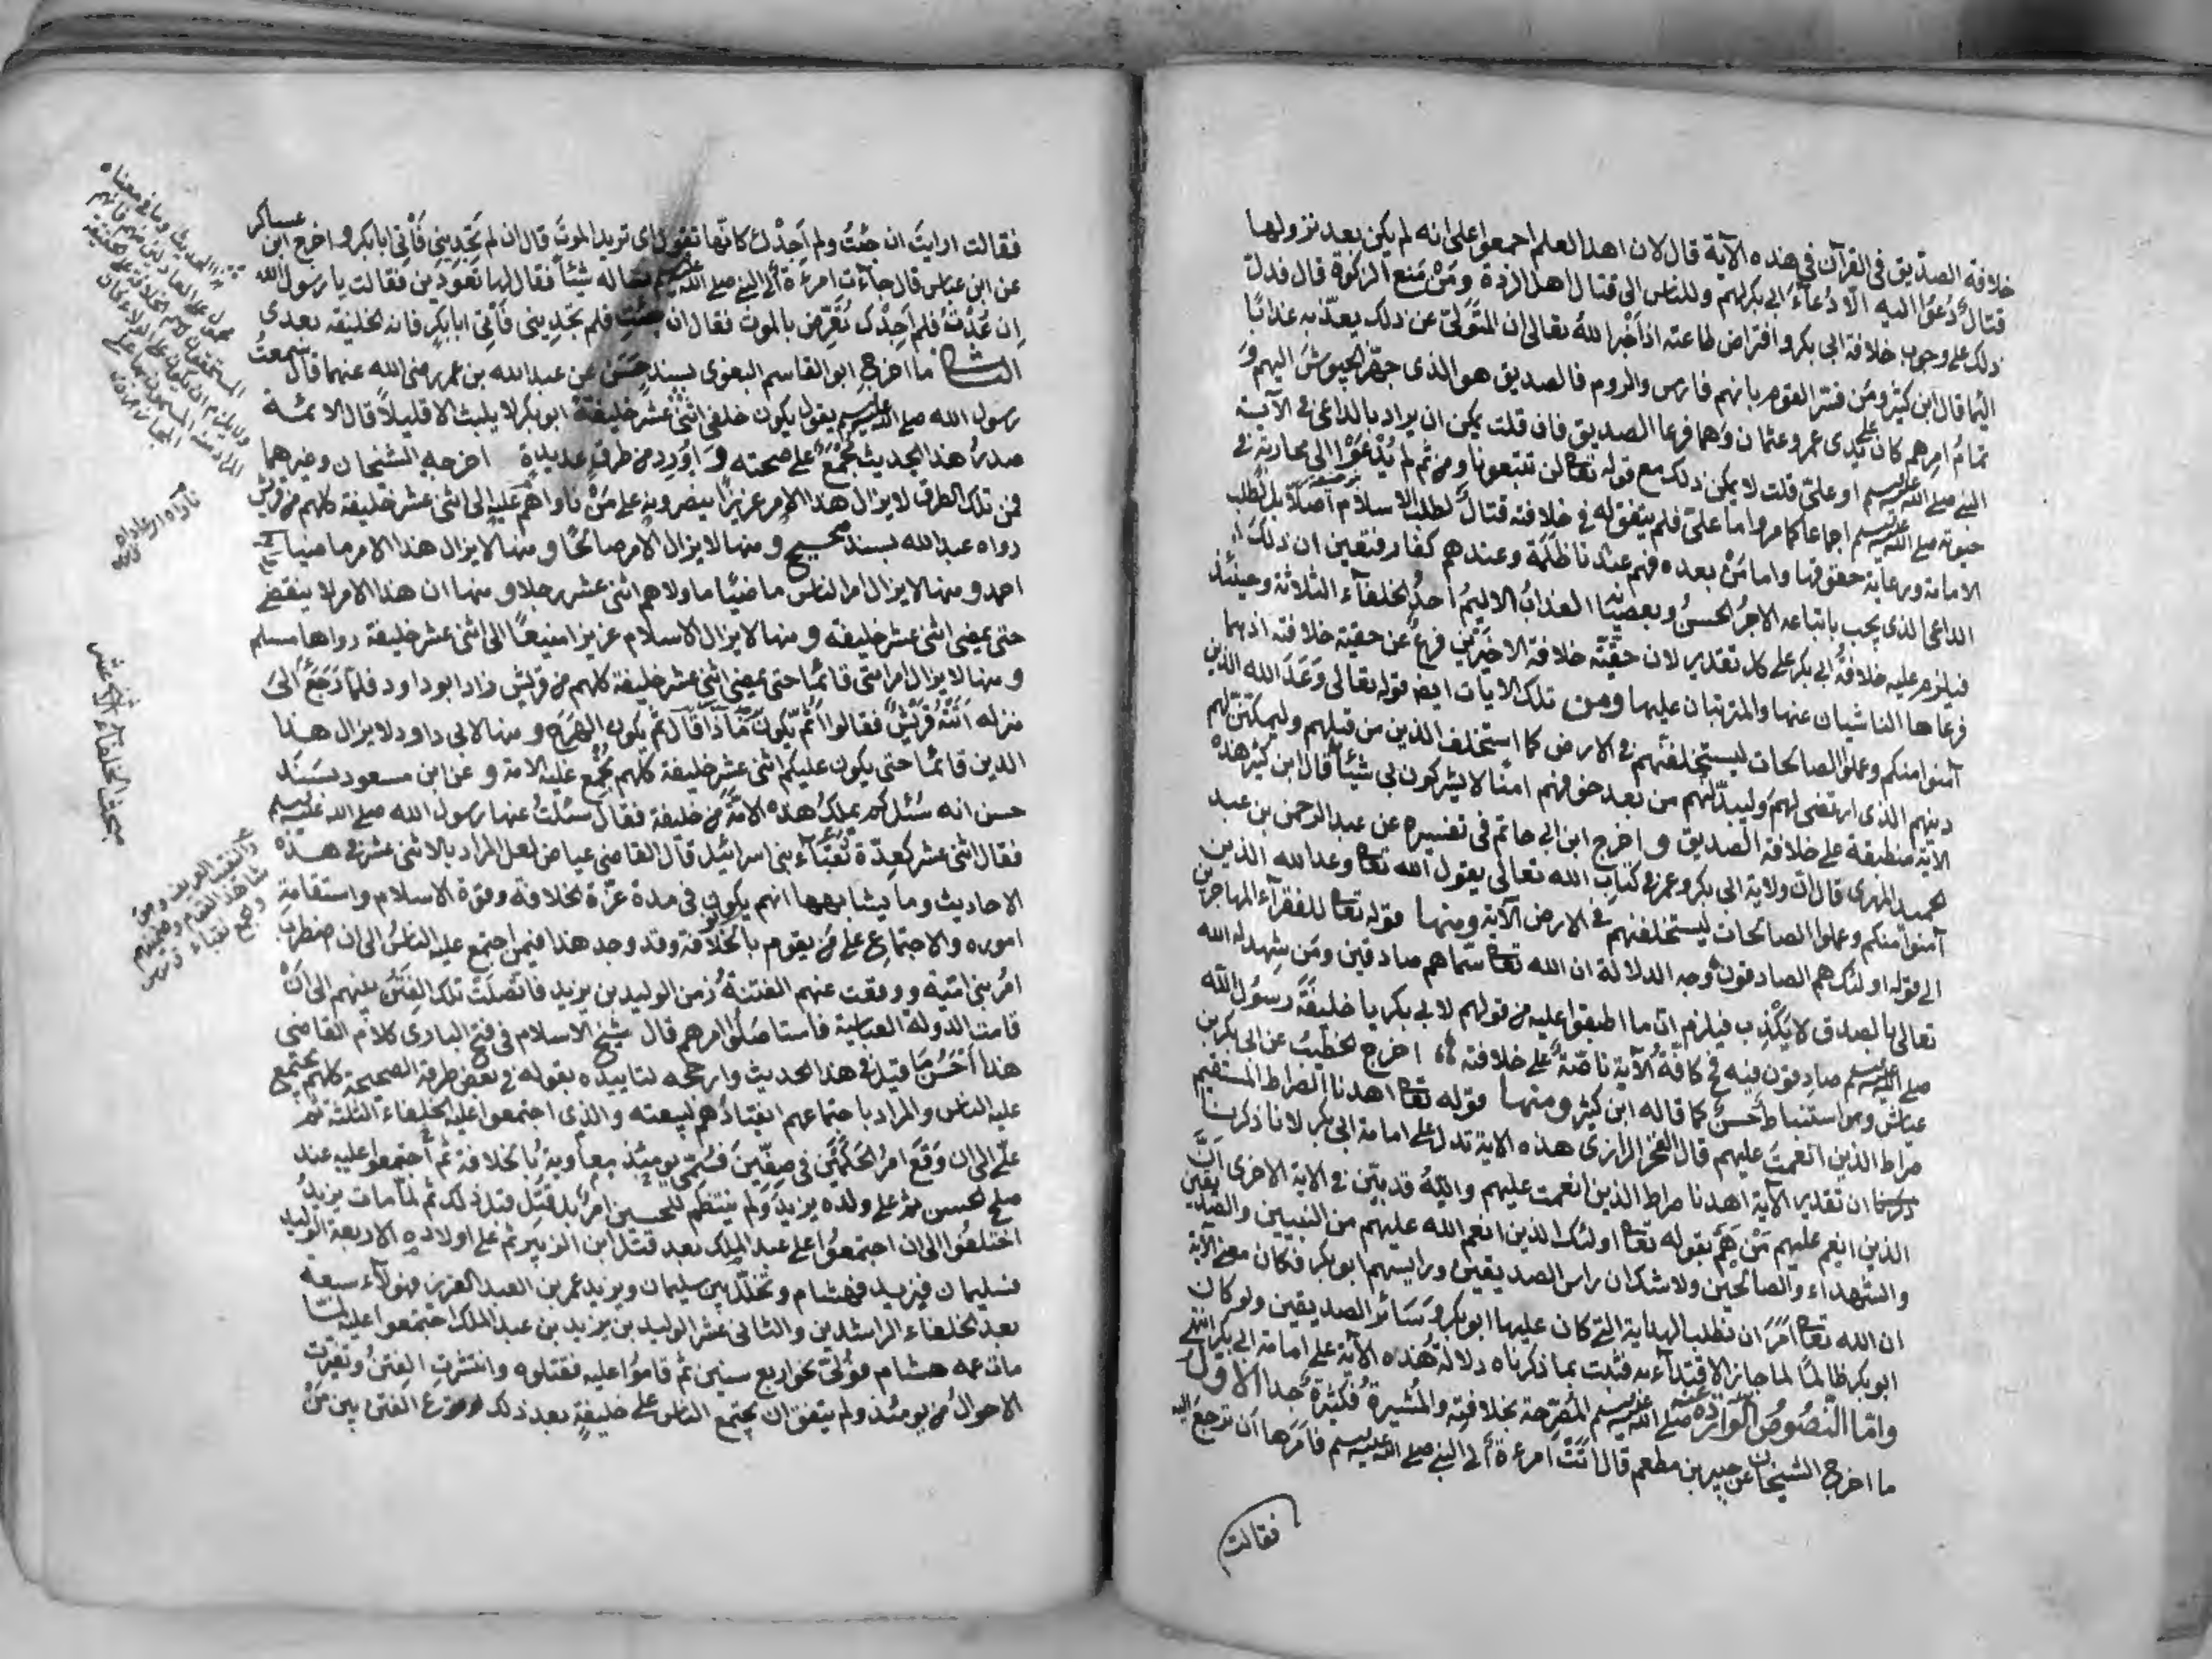 خلافة الصدّيق في القرآن في هذه الآية قال لان اهل العلم اجمعوا على انه لم يكن بعد نزولها
قتال دُعُوا اليه الّا دُعآءُ ابي بكر لهم وللناس الى قتال اهل الردة ومَنْ مَنع الزكوة قال فدلّ
ذلك على وجوب خلافة ابي بكر وافتراض طاعته اذ اخبر اللهُ تعالى ان المتولّى عن ذلك يعذّبه عذابًا
اليمًا قال ابن كثير ومَن فسّر القوم بانهم فارس والروم فالصديق هو الذي جهّز الجيوشَ اليهم وَ
تمامُ امرهم كان على يدى عمر وعثمان وهما فرعا الصديق فان قلت يمكن ان يراد بالداعى في الآية
النبي صلى الله عليه وسلم او على قلت لا يمكن ذلك مع قوله تعا لن تتبعونا ومن ثم لم يُدْعَوْا الى محاربة في
حيوته صلى الله عليه وسلم اجماعا كما مر واما علىّ فلم يتفق له في خلافته قتالٌ لطلب الاسلام اصلًا بل لطلب
الامامة ورعاية حقوقها واما مَنْ بعده فهم عندنا ظلمة وعندهم كفار فتعين ان ذلك
الداعى الذى يجب باتباعه الاجرُ الحسنُ وبعصيانه العذابُ الاليمُ احدُ الخلفآء الثلاثة وحينئذ
فيلزم عليه خلافةُ ابي بكر على كل تقدير لان حقّيّة خلافة الاخيرَيْنِ فرعٌ عن حقية خلافته اذ هما
فرعاها الناشيان عنها والمترتبان عليها ومن تلك الايات ايضا قوله تعالى وَعَدَ الله الذين
آمنوا منكم وعملوا الصالحات ليستخلفنّهم في الارض كما استخلف الذين من قبلهم وليمكننّ لهم
دينهم الذى ارتضى لهم وليبدّلنّهم من بعد خوفهم امنًا لا يشركون بي شيئًا قال ابن كثير هذه
الآية منطبقة على خلافة الصديق و اخرج ابن ابي حاتم في تفسيره عن عبد الرحمن بن عبد
الحميد المهرى قال انّ ولاية ابي بكر وعمر في كتاب الله تعالى يقول الله تعا وعد الله الذين
آمنوا منكم وعملوا الصالحات ليستخلفنهم في الارض الآية ومنها قوله تعا للفقرآء المهاجرين
الى قوله اولئك هم الصادقون وجه الدلالة ان الله تعا سمّاهم صادقين ومَن شهد له الله
تعالى بالصدق لا يكْذِب فيلزم انّ ما اطبقوا عليه من قولهم لابي بكر يا خليفةَ رسُول الله
صلى الله عليه وسلم صادِقون فيه فح كافّةُ الآية ناصّةً على خلافته اخرج الخطيبُ عن ابي بكر بن
عياش وهو استنباط حَسَنٌ كما قاله ابن كثير ومنها قوله تعا اهدنا الصراط المستقيم
صراط الذين انعمتَ عليهم قال الفخر الرازى هذه الاية تدل على امامة ابي بكر لانا ذكرنا
ان تقدير الآية اهدنا صراط الذين انعمت عليهم واللهُ قد بيّن في الاية الاخرى انّ
الذين انعم عليهم مَنْ هُم بقوله تعا اولئك الذين انعم الله عليهم من النبيين والصديقين
والشهداء والصالحين ولا شك ان راس الصديقين ورئيسهم ابو بكر فكان معنى الآية
ان الله تعا امَرَ ان نطلب الهداية التى كان عليها ابو بكر وسَائر الصديقين ولو كان
ابو بكر ظالمًا لما جاز الاقتدآء به فثبت بما ذكرناه دلالةُ هذه الآية على امامة ابي بكر انتهى
وامّا النّصُوصُ الواردة عنه صلى الله عليه وسلم المصَرّحة بخلافته والمُشيرةُ فكثيرةٌ جدا الاوّل
ما اخرج الشيخان عن جبير بن مطعم قال اتَتْ امرءة الى النبي صلى الله عليه وسلم فامَرها ان ترجعَ اليه
فقالت
فقالت ارايتَ ان جئتُ ولم اَجِدْك كانّها تقول اى تريد الموتَ قال ان لم تَجِدِيني فَاْتي ابا بكر و اخرج ابن عساكر
عن ابن عباس قال جآءت امرءة الى النبي صلى الله عليه وسلم تساله شيئًا فقال لها تعُودين فقالت يا رسول الله
اِن عُدْتُ فلم اَجِدْك تُعَرِّض بالموت فقال ان جئتِ فلم تجديني فَاْتي ابا بكر فانه الخليفة بعدى
الثانى ما اخرج ابو القاسم البغوى بسند حَسَن عن عبد الله بن عمر رضى الله عنهما قال سمعتُ
رسول الله صلى الله عليه وسلم يقول يكون خلفى اثنى عشر خليفة ابو بكر لا يلبث الا قليلًا قال الائمّة
صدرُ هذا الحديث مُجْمَعٌ على صحته و اَوْرِد من طرقٍ عديدةٍ اخرجه الشيخان وغيرهما
فمن تلك الطرق لا يزال هذا الامر عزيزًا ينصرون على مَنْ ناواهم عليه الى اثنى عشر خليفة كلهم من قريش
رواه عبد الله بسند صحيح و منها لا يزال الامر صالحًا و منها لا يزال هذا الامر ماضيا
احمد ومنها لا يزال امر الناس ماضيًا ما ولاهم اثنى عشر رجلا و منها ان هذا الامر لا ينقضى
حتى يمضى اثنى عشر خليفه و منها لا يزال الاسلام عزيزا منيعًا الى اثنى عشر خليفة رواها مسلم
و منها لا يزال امر امتى قائمًا حتى يمضى اثنى عشر خليفة كلهم من قريش زاد ابو داود فلمّا رَجَعَ الىَ
منزله اَتَتْهُ قُرَيْشٌ فقالوا ثُمّ يكونُ مَاذَا قَالَ ثُم يكون الهَرَج و منها لابي داود لا يزال هذا
الدين قائمًا حتى يكون عليكم اثنى عشر خليفة كلهم تجمع عليه الامة و عن ابن مسعود بسَنَد
حسن انه سُئل كم يملكُ هذه الامّة من خليفة فقال سئلتُ عنها رسول الله صلى الله عليه وسلم
فقال اثنى عشر كعِدّة نُقبآءِ بنى اسرائيل قال القاضى عياض لعل المراد بالاثنى عشر في هذه
الاحاديث وما يشابهها انهم يكونون في مدة عزّة الخلافة وقوّة الاسلام واستقامة
اموره والاجتماع على من يقوم بالخلافة وقد وجد هذا فيمن اجتمع عليه الناسُ الى ان اضطربَ
امرُ بنى اميّة ووقعت عنهم الفتنةُ زمن الوليد بن يزيد فاتّصلَتْ تلك الفِتَنُ بينهم الى انْ
قامت الدولة العباسية فاستاصَلُوا امرهم قال شيخ الاسلام في فتح البارى كلامُ القاضى
هذا اَحْسَنُ مَا قيل في هذا الحديث وارجحه لتاييده بقوله في بعض طرقه الصحيحة كلهم يجتمع
عليه الناس والمراد باجتماعهم انقيادُهم لبيعته والذى اجتمعوا عليه الخلفاء الثلثة ثم
علىّ الى ان وَقَعَ امرُ الحَكَمَيْن في صِفّينَ فَسُمّى يومئذ معاوية بالخلافة ثم اجتمعوا عليه عند
صلح الحسن ثم على ولده يزيد ولم ينتظم للحسين امرٌ بل قُتِل قبل ذلك ثم لمّا مات يزيدُ
اختلفُوا الى ان اجتمعُوا على عبد الملِك بعد قتل ابن الزبير ثم على اولاده الاربعة الوليد
فسليمان فيزيد فهشام و تخلّل بين سليمان ويزيد عمر بن العبد العزيز فهولآء سبعة
بعد الخلفاء الراشدين والثانى عشر الوليد بن يزيد بن عبد الملك اجتمعوا عليه لمّا
مات عمه هشام فوُلّى نحو اربع سنين ثم قاموا عليه فقتلوه وانتشرتِ الفتنُ وتغيرت
الاحوالُ من يومئذ ولم يتفق ان يجتمع الناس على خليفةٍ بعد ذلك لوقوع الفتن بين مَنْ
مبحث الخلفاء الاثنى عشر